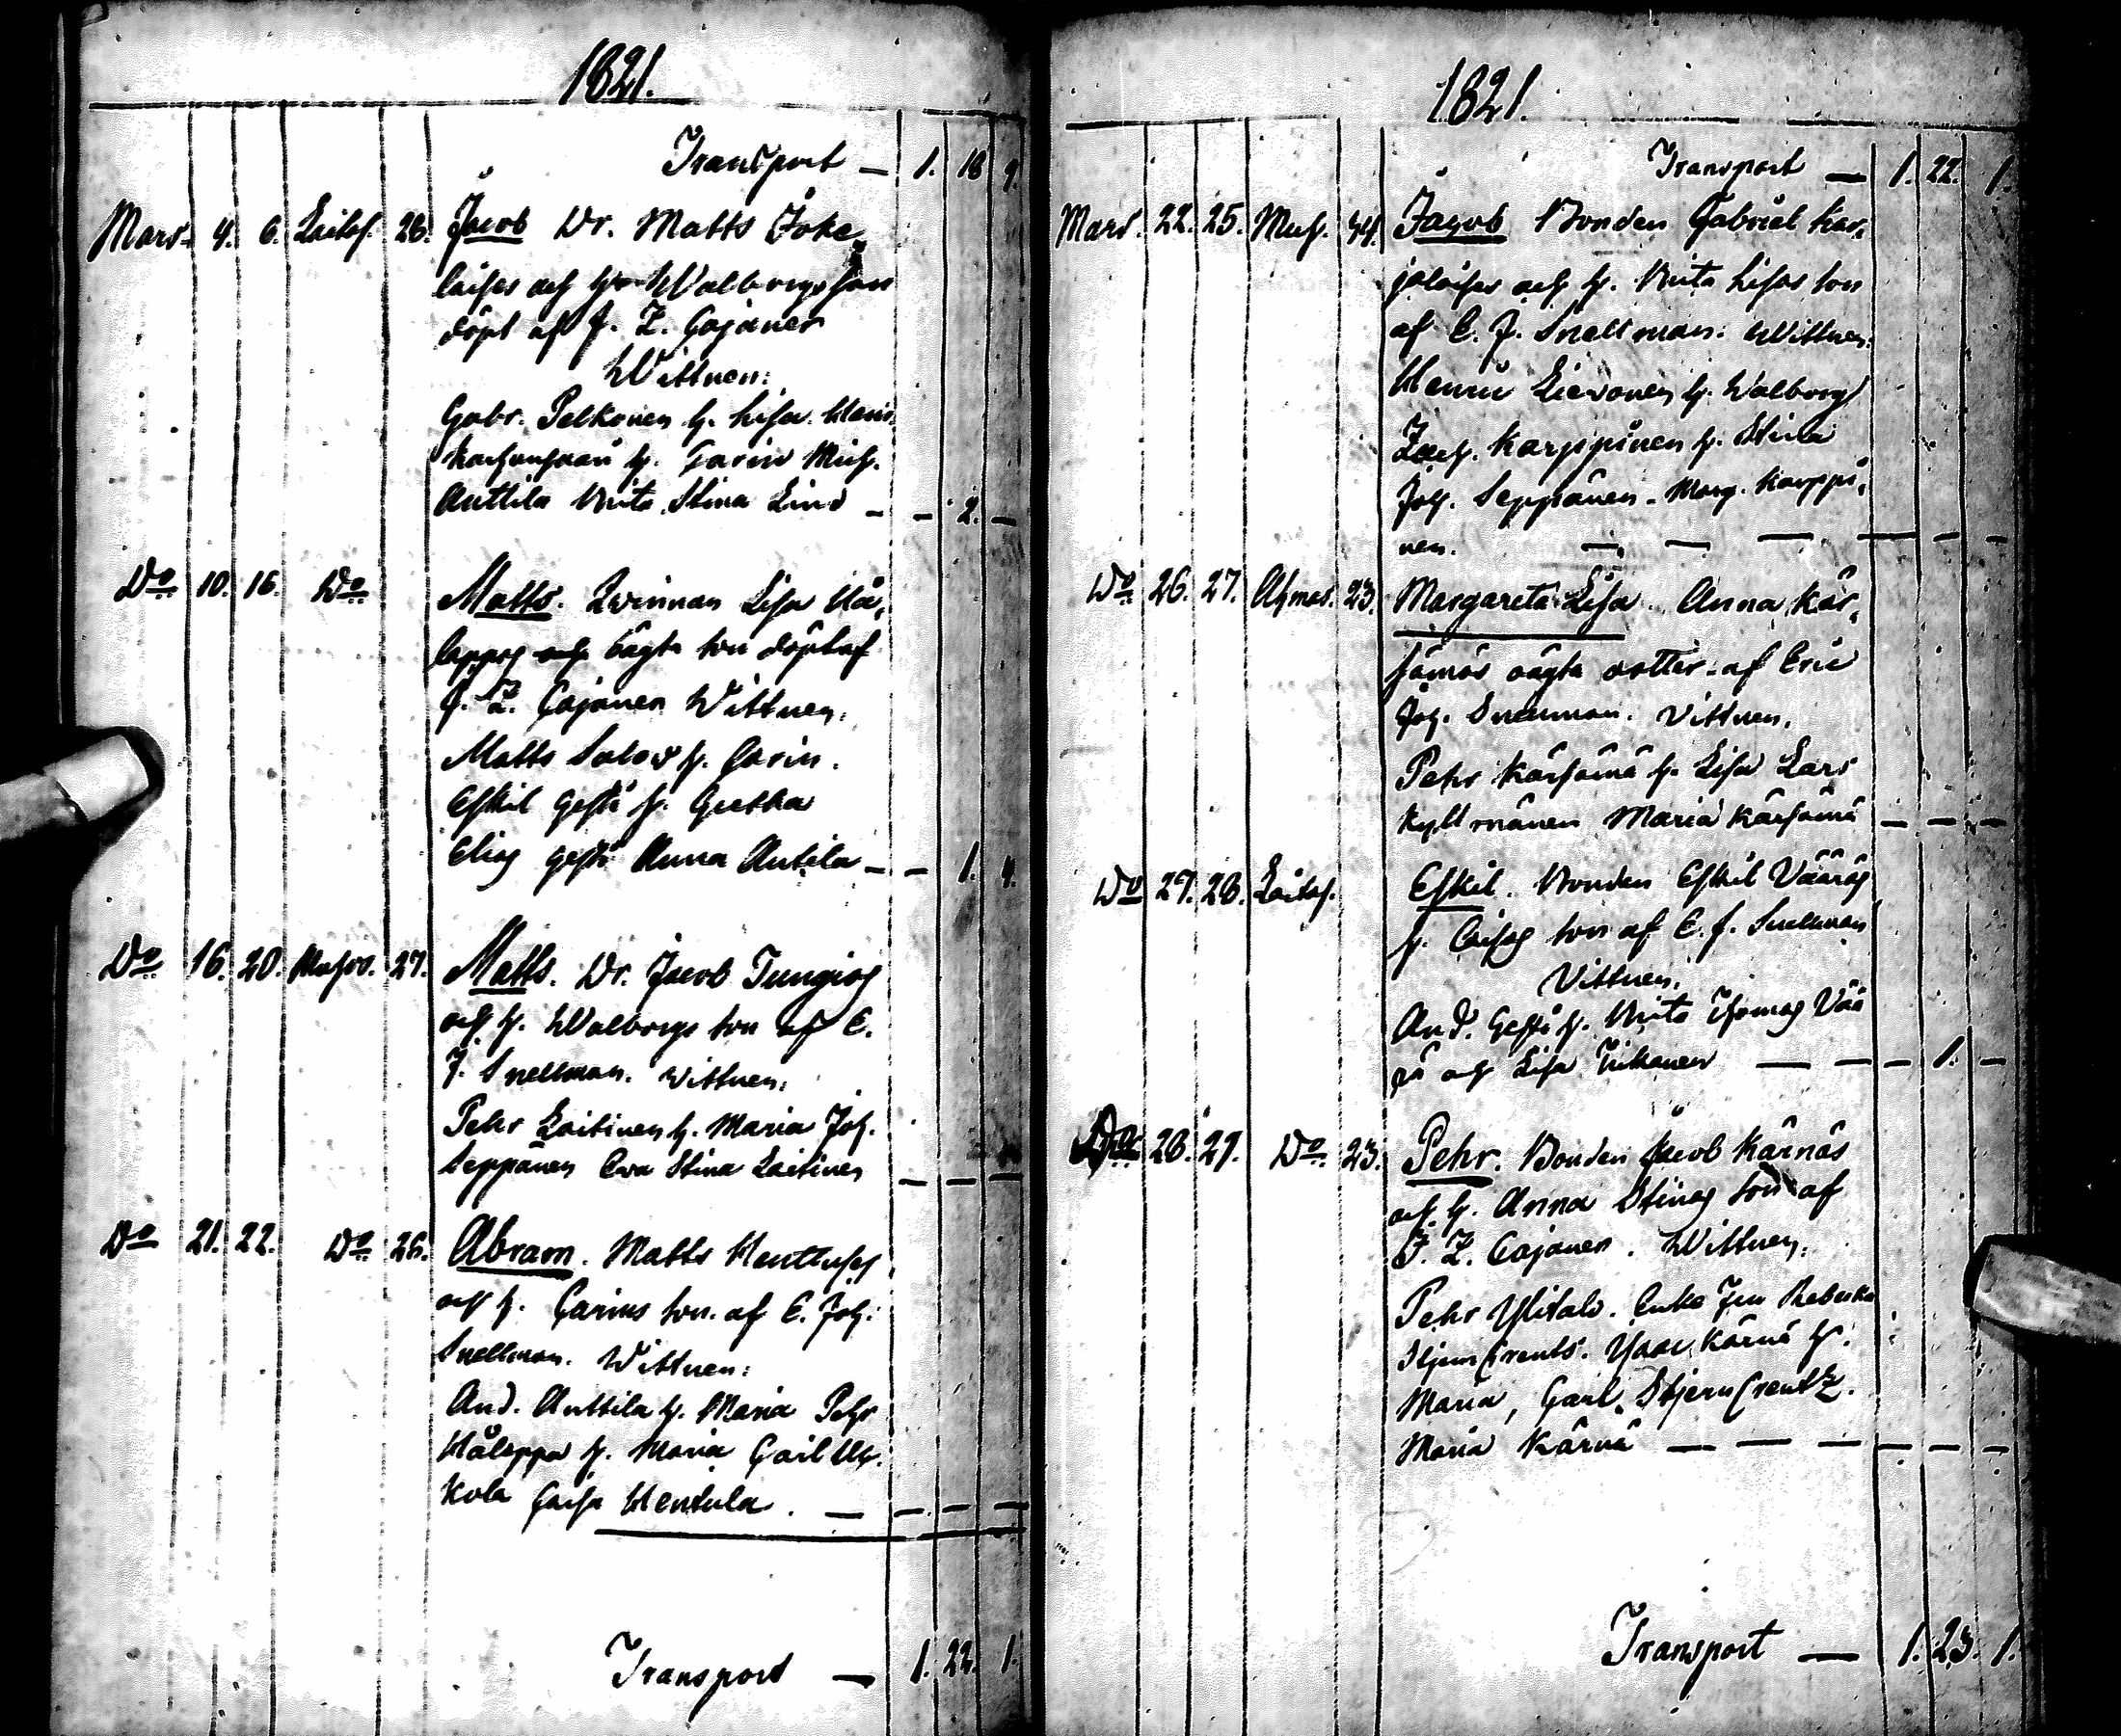 1821.
Transport — 1. 18 9.
Mars. 4. 6. Laitas. 26. Jacob Dr. Matts Joke
laises och h. Walborgs son
döpt af J. Z. Cajanen
Wittnen:
Gabr. Pelkonen h. Lisa.
h. Carin Mich.
Anttila Brita Stina Lind – – 2. –
Do 10. 16. Do Matts. Qvinnan Lisa Hå,
lappas oägta son döpt af
J. Z. Cajanen Wittnen,
Matts Salo h. Carin.
Eskil Gästi h. Gretha
Elias Gästi Anna Antila – – 1. 4.
Do 16. 20. 27. Matts. Dr. Jacob Tungias
och h. Walborgs son af E.
J. Snellman. Wittnen:
Pehr Laitinen h. Maria Joh.
Seppänen Eva Stina Laitinen – – –
Do 21. 22. Do 26. Abram. Matts Hentulas
och h. Carins son. af E. Joh.
Snellman. Wittnen:
And. Anttila h. Maria Pehr
Hålappa h. Maria Carl
kola Caisa Hentula. – – – –
Transport — 1. 22. 1.
1821.
Transport — 1. 22. 1.
Mars. 22. 25. Muh. 44. Jacob Bonden Gabriel Kar,
jalaises och h. Brita Lisas son
af E. J. Snellman. Wittnen:
Henric Lievonen h. Walborg
Zach. Karppinen h. Stina
Joh. Seppänen. Marg. Karppi,
nen. – – – – – –
Do 26. 27. Ahmas. 23. Margareta Lisa. Anna Kär,
sämäs oägta dotter. af Eric
Joh. Snellman. Vittnen.
Pehr Kärsämä h. Lisa Lars
Kyllmänen Maria Kärsämä – – –
Do 27. 28. Laitas. Eskil. Bonden Eskil Vääräs
h. Caisas son af E. J. Snellman
Vittnen.
And. Gästi h. Brita Thomas Vää
rä och Lisa Tiikanen — — – 1. –
Do 28. 29. Do 23. Pehr. Bonden Jacob Kärnäs
och h. Anna Stinas son af
J. Z. Cajanen. Wittnen:
Pehr Ylitalo. Enke Fru Rebecka
Stjerncreutz. Isaac Kärnä h.
Maria, Carl Stjerncreutz.
Maria Kärnä — — — – – –
Transport — 1. 23. 1.